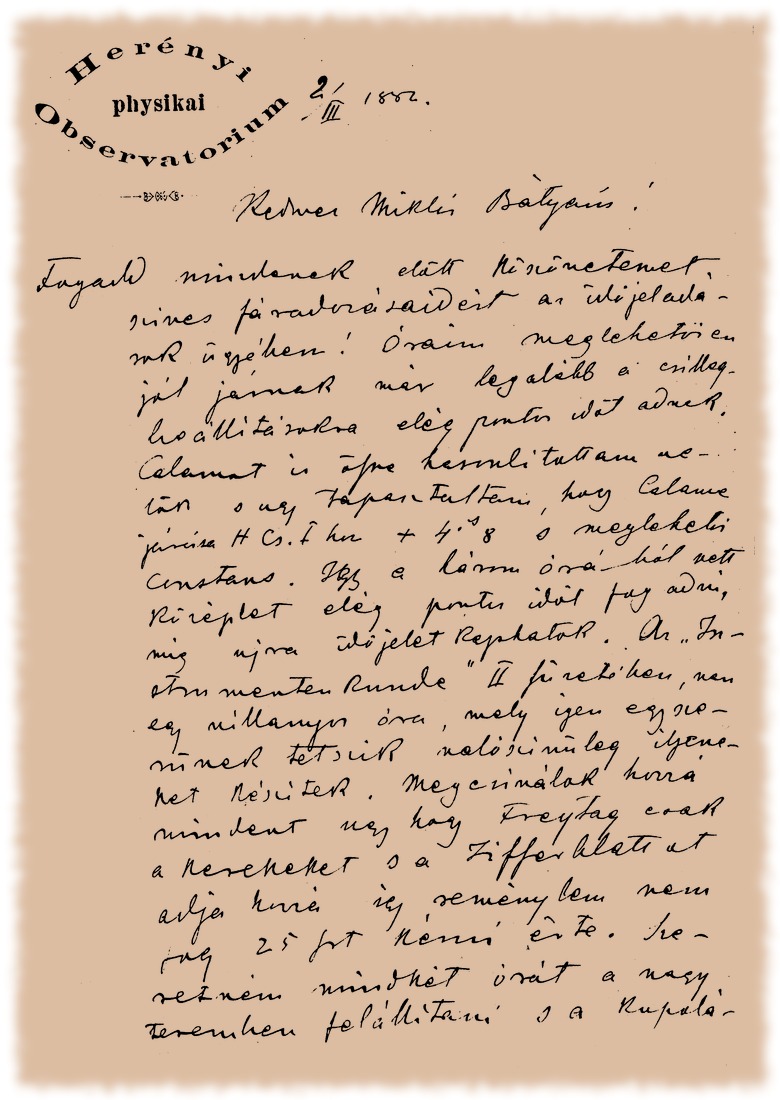 Herényi
physikai
Observatorium
2/III 1882.
Kedves Miklós Bátyám!
Fogadd mindenek előtt köszönetemet
szives fáradozásaidért az időjeladá-
sok ügyében! Óráim meglehetősen
jól járnak már legalább a csillag-
beállításokra elég pontos időt adnak.
Calamet is össze hasonlítottam ve-
lök s ugy tapasztaltam, hogy Calame
járása H Cs. I hez + 4.ˢ8 s meglehetős
constans. Igy a három órá-ból vett
középlet elég pontos időt fog adni,
mig ujra időjelet kaphatok. Az „In-
strumentenkunde" II füzetében, van
egy villanyos óra, mely igen egysze-
rűnek tetszik valószinüleg ilyene-
ket készitek. Megcsinálok hozzá
mindent ugy hogy Freytag csak
a kerekeket s a Zifferblattot
adja hozzá igy reménylem nem
fog 25 frt kérni érte. Sze-
retném mindkét órát a nagy
teremben felállítani s a kupolá-